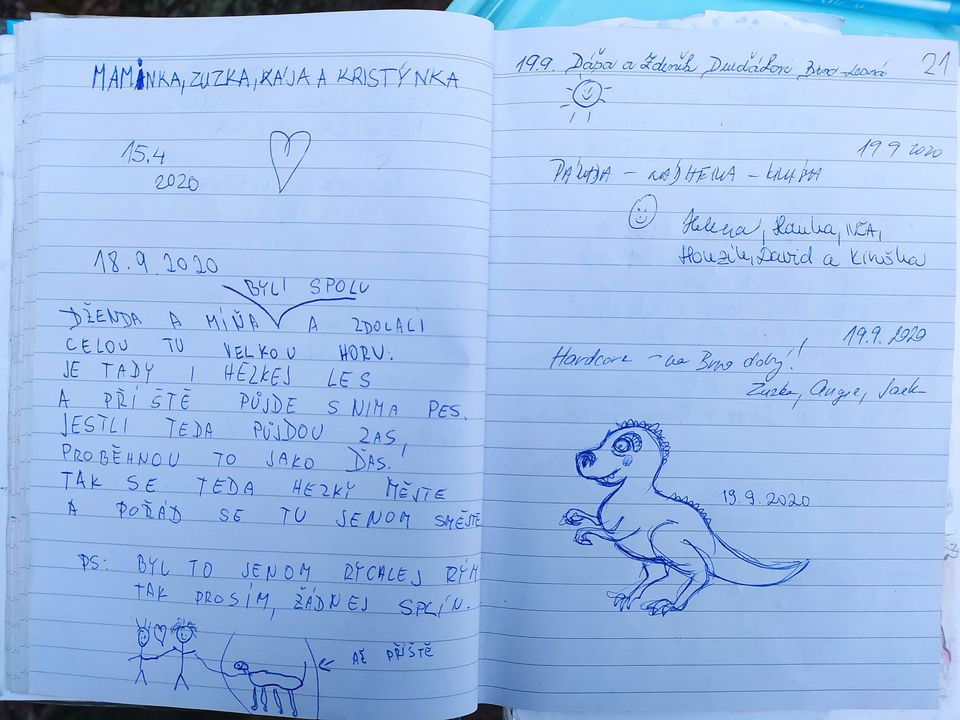 MAMINKA, ZUZKA, KÁJA A KRISTÝNKA
15.4
2020
18.9.2020
BYLI SPOLU
DŽENDA A MÍŇA A ZDOLALI
CELOU TU VELKOU HORU.
JE TADY I HEZKEJ LES
A PŘÍŠTĚ PŮJDE S NIMA PES.
JESTLI TEDA PŮJDOU ZAS,
PROBĚHNOU TO JAKO ĎAS.
TAK SE TEDA HEZKÝ MĚJTE
A POŘÁD SE TU JENOM SMĚJTE
PS: BYL TO JENOM RYCHLEJ RÝM
TAK PROSÍM, ŽÁDNEJ SPLÍN.
AŽ PŘÍŠTĚ
21
19.9. Dáša a Zdeněk Brno
19 9 2020
PARÁDA - NÁDHERA -
Helena, Hanka,
Honzík, David a
19.9.2020
Hardcore - na Brno dobrý!
Zuzka, Angie, Jack
19.9.2020